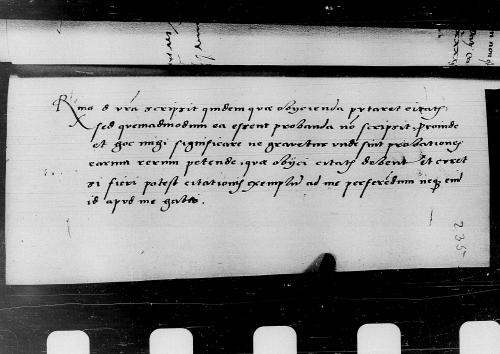 Rma d vra scripsit quidem quæ obijcienda putaret citatis,
sed quemadmodum ea essent probanda nõ scripsit, proinde
et hoc mihi significare ne gravetur unde sint probationes
earum rerum petendæ, quæ obijci citatis debent et curet
si fieri potest citationis exemplũ ad me perferẽdum neq; em
id apud me habeo.
235